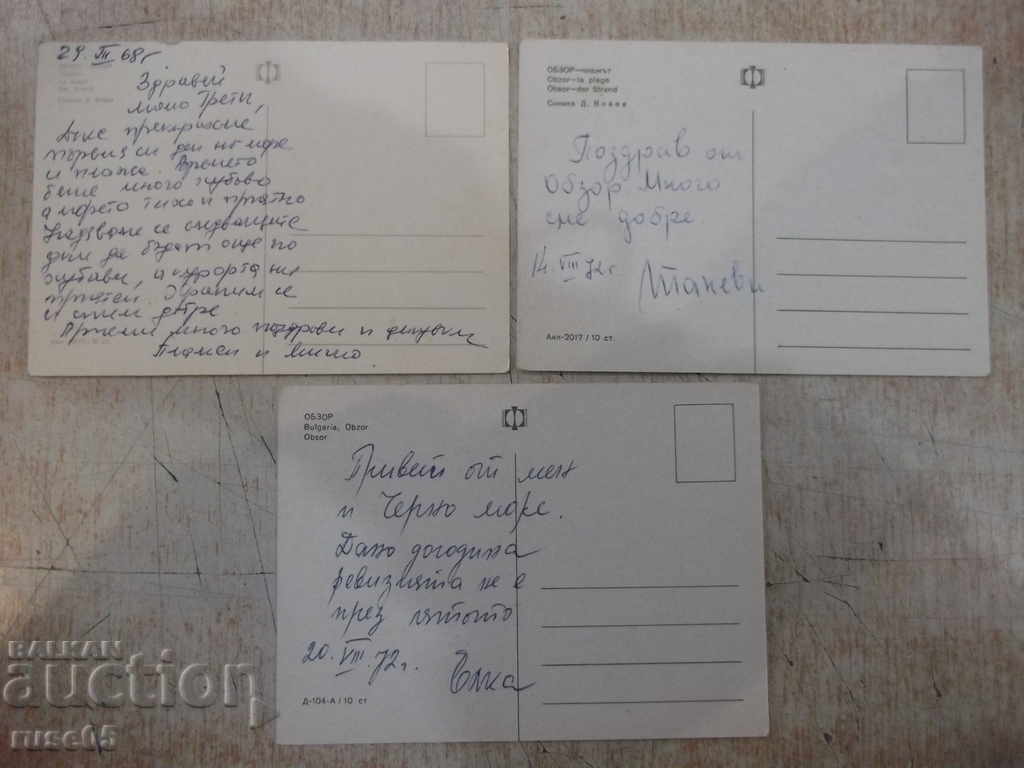 29. III 68 г
Здравей
Днес прекарахме
първия си ден на море
и плажа. Времето
беше много хубаво
а морето тихо и приятно
Надяваме се следващите
дни да бъдат още по
хубави, и курорта ни
приятен. Храним се
и спим добре
много поздрави и целувки
Пламен и
ОБЗОР—плажът
Obzor—la plage
Obsor—der Strand
Снимка Д. Янков
Поздрав от
Обзор. Много
сме добре.
14. VIII 72 г.
Танева
Акл-2017 / 10 ст.
ОБЗОР
Bulgaria, Obzor
Obsor
Привет от мен
и Черно море.
Дано догодина
ревизията не е
през лятото
20. VIII. 72 г.
Елка
Д-104-А / 10 ст
BALKAN
auction
ruse65